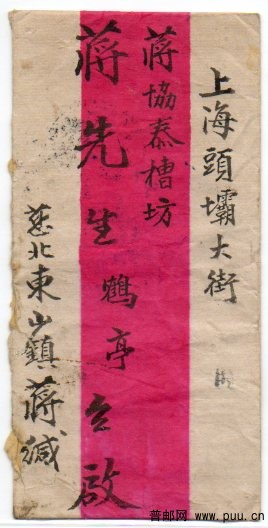 上海頭壩大街
蔣協泰槽坊
蔣先生鶴亭立啟
慈北東山鎮蔣緘
普邮网 www.puu.cn